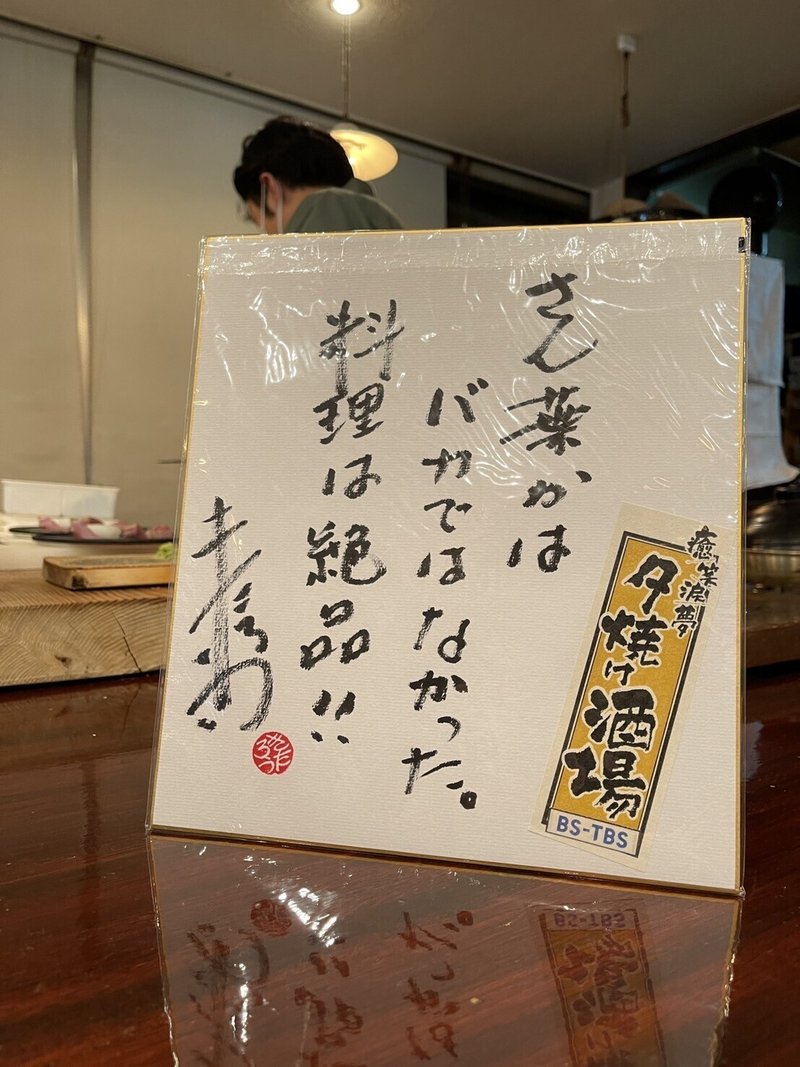 さん葉かは
バカではなかった。
料理は絶品!!
癒笑涙夢
夕焼け酒場
BS-TBS